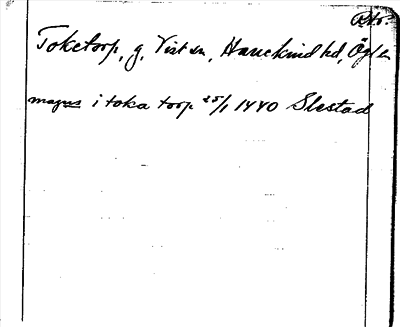 Toketorp, g, Vist sn, Hanekind hd, Ögl ln
magnus i toka torp 25/1 1440 Slestad